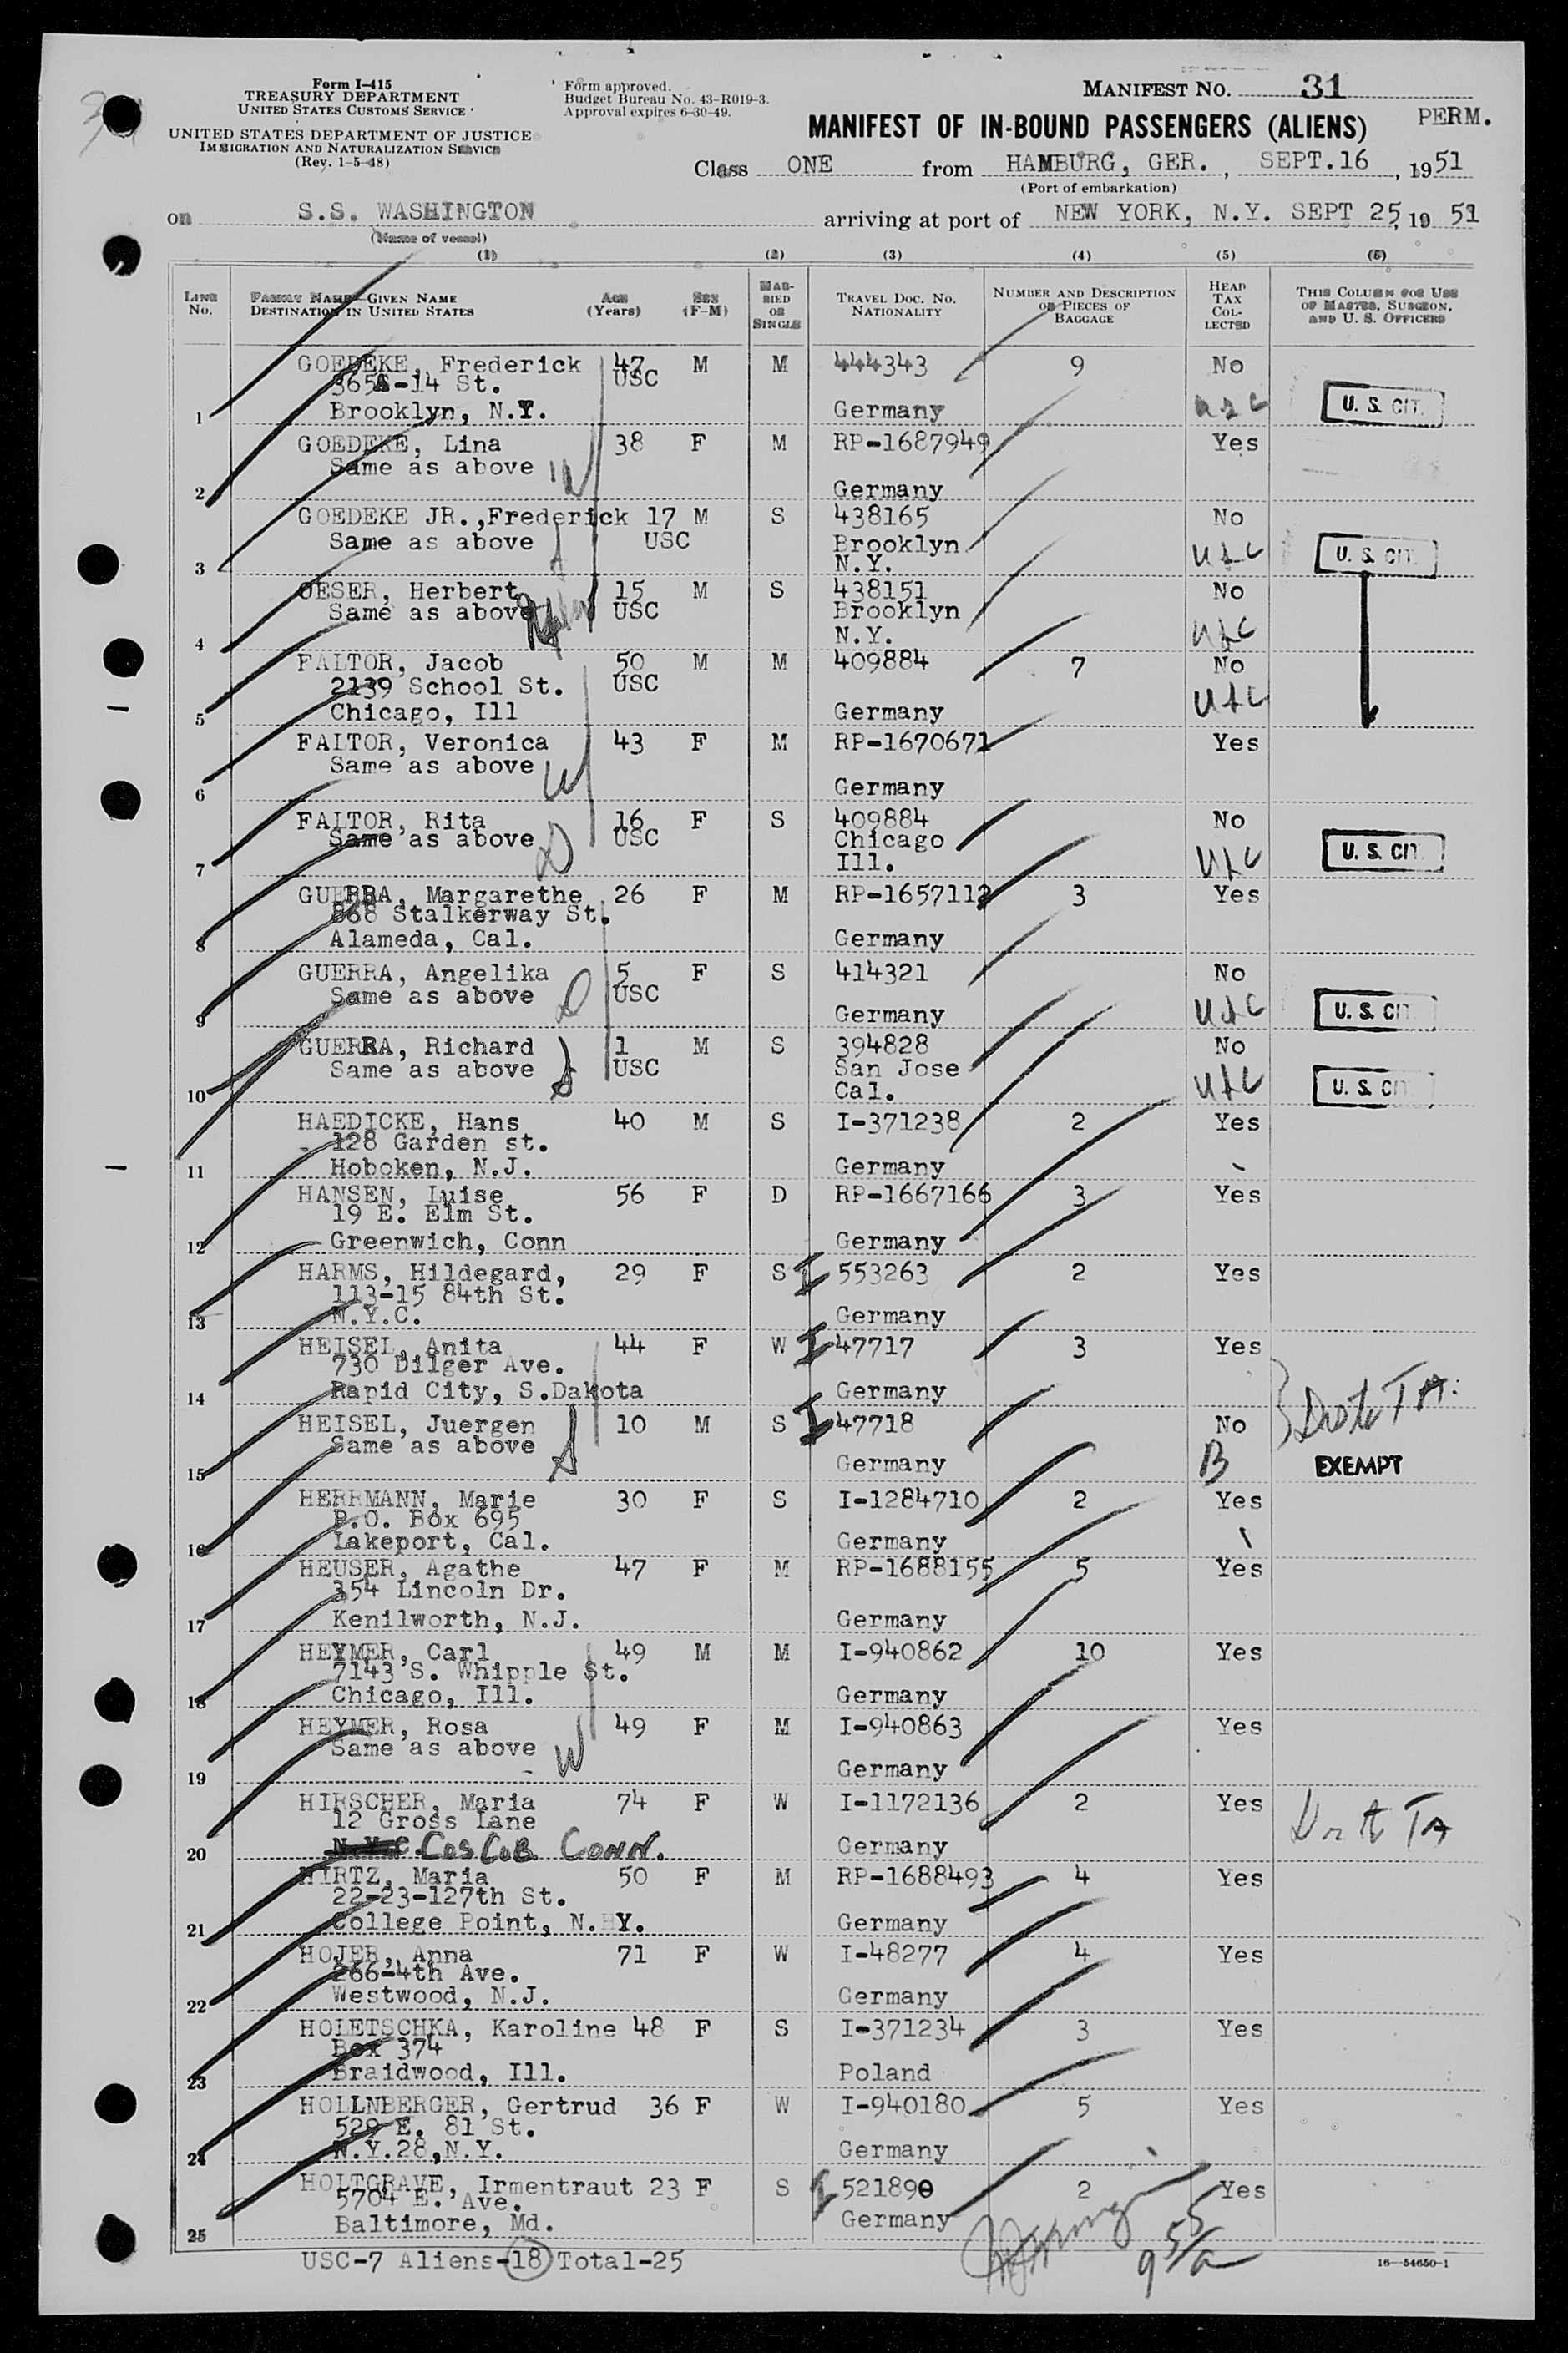 Form I-415
TREASURY DEPARTMENT
UNITED STATES CUSTOMS SERVICE
UNITED STATES DEPARTMENT OF JUSTICE
IMMIGRATION AND NATURALIZATION SERVICE
(Rev. 1-5-48)
Form approved.
Budget Bureau No. 43-R019-3.
Approval expires 6-30-49.
MANIFEST NO. 31
PERM.
MANIFEST OF IN-BOUND PASSENGERS (ALIENS)
Class ONE from HAMBURG, GER., SEPT.16, 1951
(Port of embarkation)
on S.S. WASHINGTON arriving at port of NEW YORK, N.Y. SEPT 25, 19 51
(Name of vessel)
(1) (2) (3) (4) (5) (6)
LINE No. FAMILY NAME—GIVEN NAME DESTINATION IN UNITED STATES AGE (Years) SEX (F-M) MARRIED OR SINGLE TRAVEL DOC. NO. NATIONALITY NUMBER AND DESCRIPTION OF PIECES OF BAGGAGE HEAD TAX COLLECTED THIS COLUMN FOR USE OF MASTER, SURGEON, AND U. S. OFFICERS
GOEDEKE, Frederick 47 M M 444343 9 No
365A-14 St. USC
1 Brooklyn, N.Y. Germany usc U. S. CIT.
GOEDEKE, Lina 38 F M RP-1687949 Yes
Same as above W
2 Germany
GOEDEKE JR.,Frederick 17 M S 438165 No
Same as above USC Brooklyn usc U. S. CIT.
3 N.Y.
OESER, Herbert 15 M S 438151 No
Same as above USC Brooklyn
4 N.Y. usc
FALTOR, Jacob 50 M M 409884 7 No
2139 School St. USC usc
5 Chicago, Ill Germany
FALTOR, Veronica 43 F M RP-1670671 Yes
Same as above W
6 Germany
FALTOR, Rita 16 F S 409884 No
Same as above D USC Chicago usc U. S. CIT.
7 Ill.
GUERRA, Margarethe 26 F M RP-1657112 3 Yes
868 Stalkerway St.
8 Alameda, Cal. Germany
GUERRA, Angelika 5 F S 414321 No
Same as above D USC
9 Germany usc U. S. CIT
GUERRA, Richard 1 M S 394828 No
Same as above S USC San Jose usc U. S. CIT
10 Cal.
HAEDICKE, Hans 40 M S I-371238 2 Yes
128 Garden st.
11 Hoboken, N.J. Germany
HANSEN, Luise 56 F D RP-1667166 3 Yes
19 E. Elm St.
12 Greenwich, Conn Germany
HARMS, Hildegard, 29 F S I 553263 2 Yes
113-15 84th St.
13 N.Y.C. Germany
HEISEL, Anita 44 F W I 47717 3 Yes
730 Dilger Ave.
14 Rapid City, S.Dakota Germany
HEISEL, Juergen 10 M S I 47718 No
Same as above S
15 Germany B EXEMPT
HERRMANN, Marie 30 F S I-1284710 2 Yes
P.O. Box 695
16 Lakeport, Cal. Germany
HEUSER, Agathe 47 F M RP-1688155 5 Yes
354 Lincoln Dr.
17 Kenilworth, N.J. Germany
HEYMER, Carl 49 M M I-940862 10 Yes
7143 S. Whipple St.
18 Chicago, Ill. Germany
HEYMER, Rosa 49 F M I-940863 Yes
Same as above W
19 Germany
HIRSCHER, Maria 74 F W I-1172136 2 Yes
12 Gross Lane
20 N.Y.C. COS COB CONN. Germany
HIRTZ, Maria 50 F M RP-1688493 4 Yes
22-23-127th St.
21 College Point, N.Y. Germany
HOJER, Anna 71 F W I-48277 4 Yes
266-4th Ave.
22 Westwood, N.J. Germany
HOLETSCHKA, Karoline 48 F S I-371234 3 Yes
Box 374
23 Braidwood, Ill. Poland
HOLLNBERGER, Gertrud 36 F W I-940180 5 Yes
529 E. 81 St.
24 N.Y.28,N.Y. Germany
HOLTGRAVE, Irmentraut 23 F S I 521890 2 Yes
5704 E. Ave.
25 Baltimore, Md. Germany
USC-7 Aliens-18 Total-25
16—54650-1